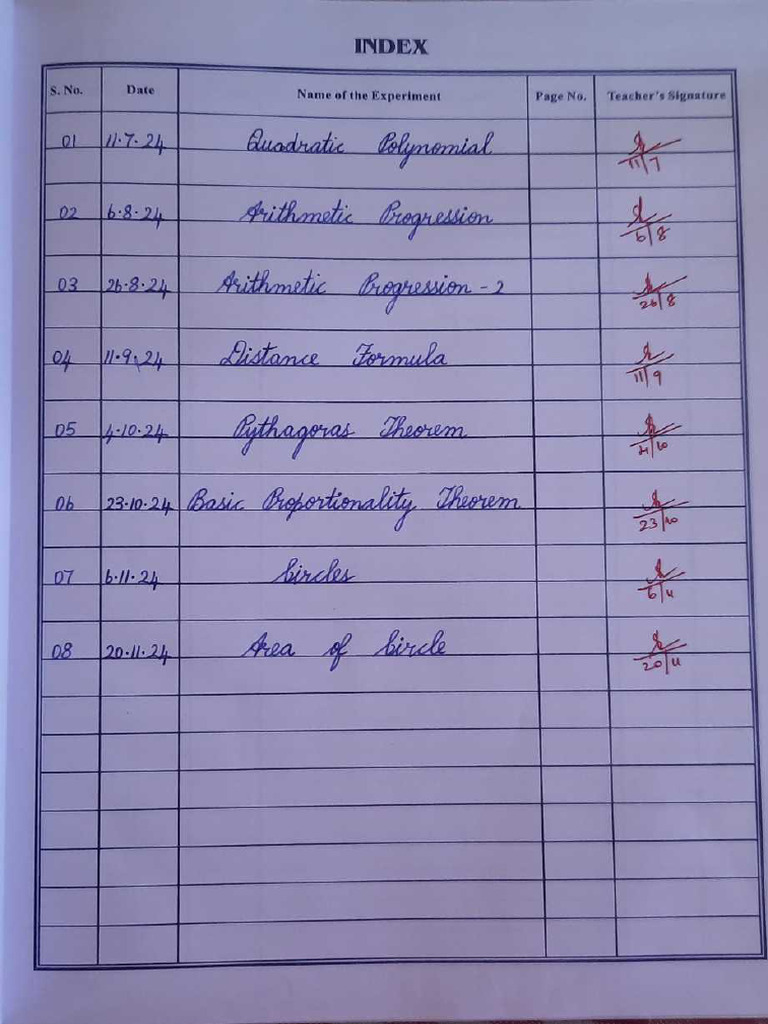 INDEX
S. No. Date Name of the Experiment Page No. Teacher's Signature
01 11.7.24 Quadratic Polynomial 11/7
02 6.8.24 Arithmetic Progression 6/8
03 26.8.24 Arithmetic Progression - 2 26/8
04 11.9.24 Distance Formula 11/9
05 4.10.24 Pythagoras Theorem 4/10
06 23.10.24 Basic Proportionality Theorem 23/10
07 6.11.24 Circles 6/11
08 20.11.24 Area of Circle 20/11